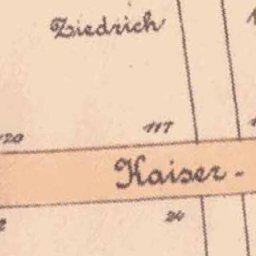 Ziedrich
120
117
Kaiser-
24